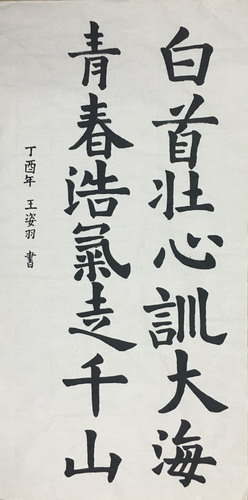 白首壯心訓大海
青春浩氣走千山
丁酉年 王姿羽 書